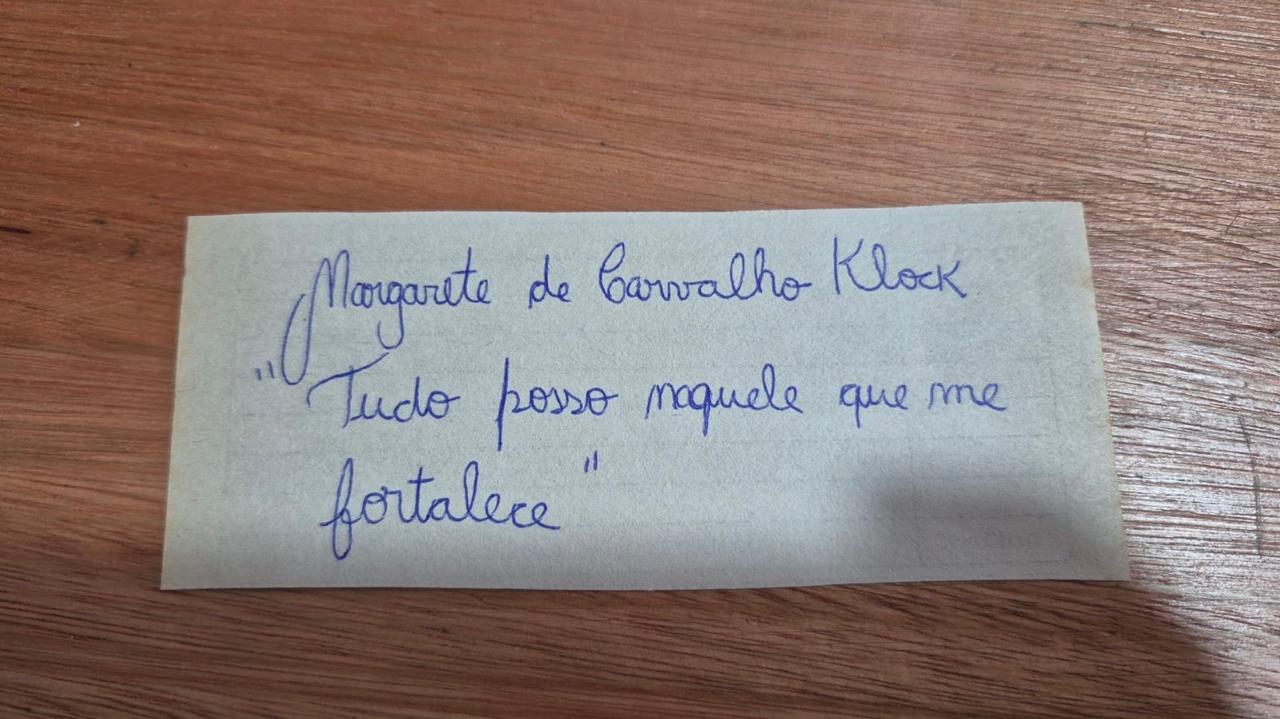 Margarete de Carvalho Klock
"Tudo posso naquele que me
fortalece"